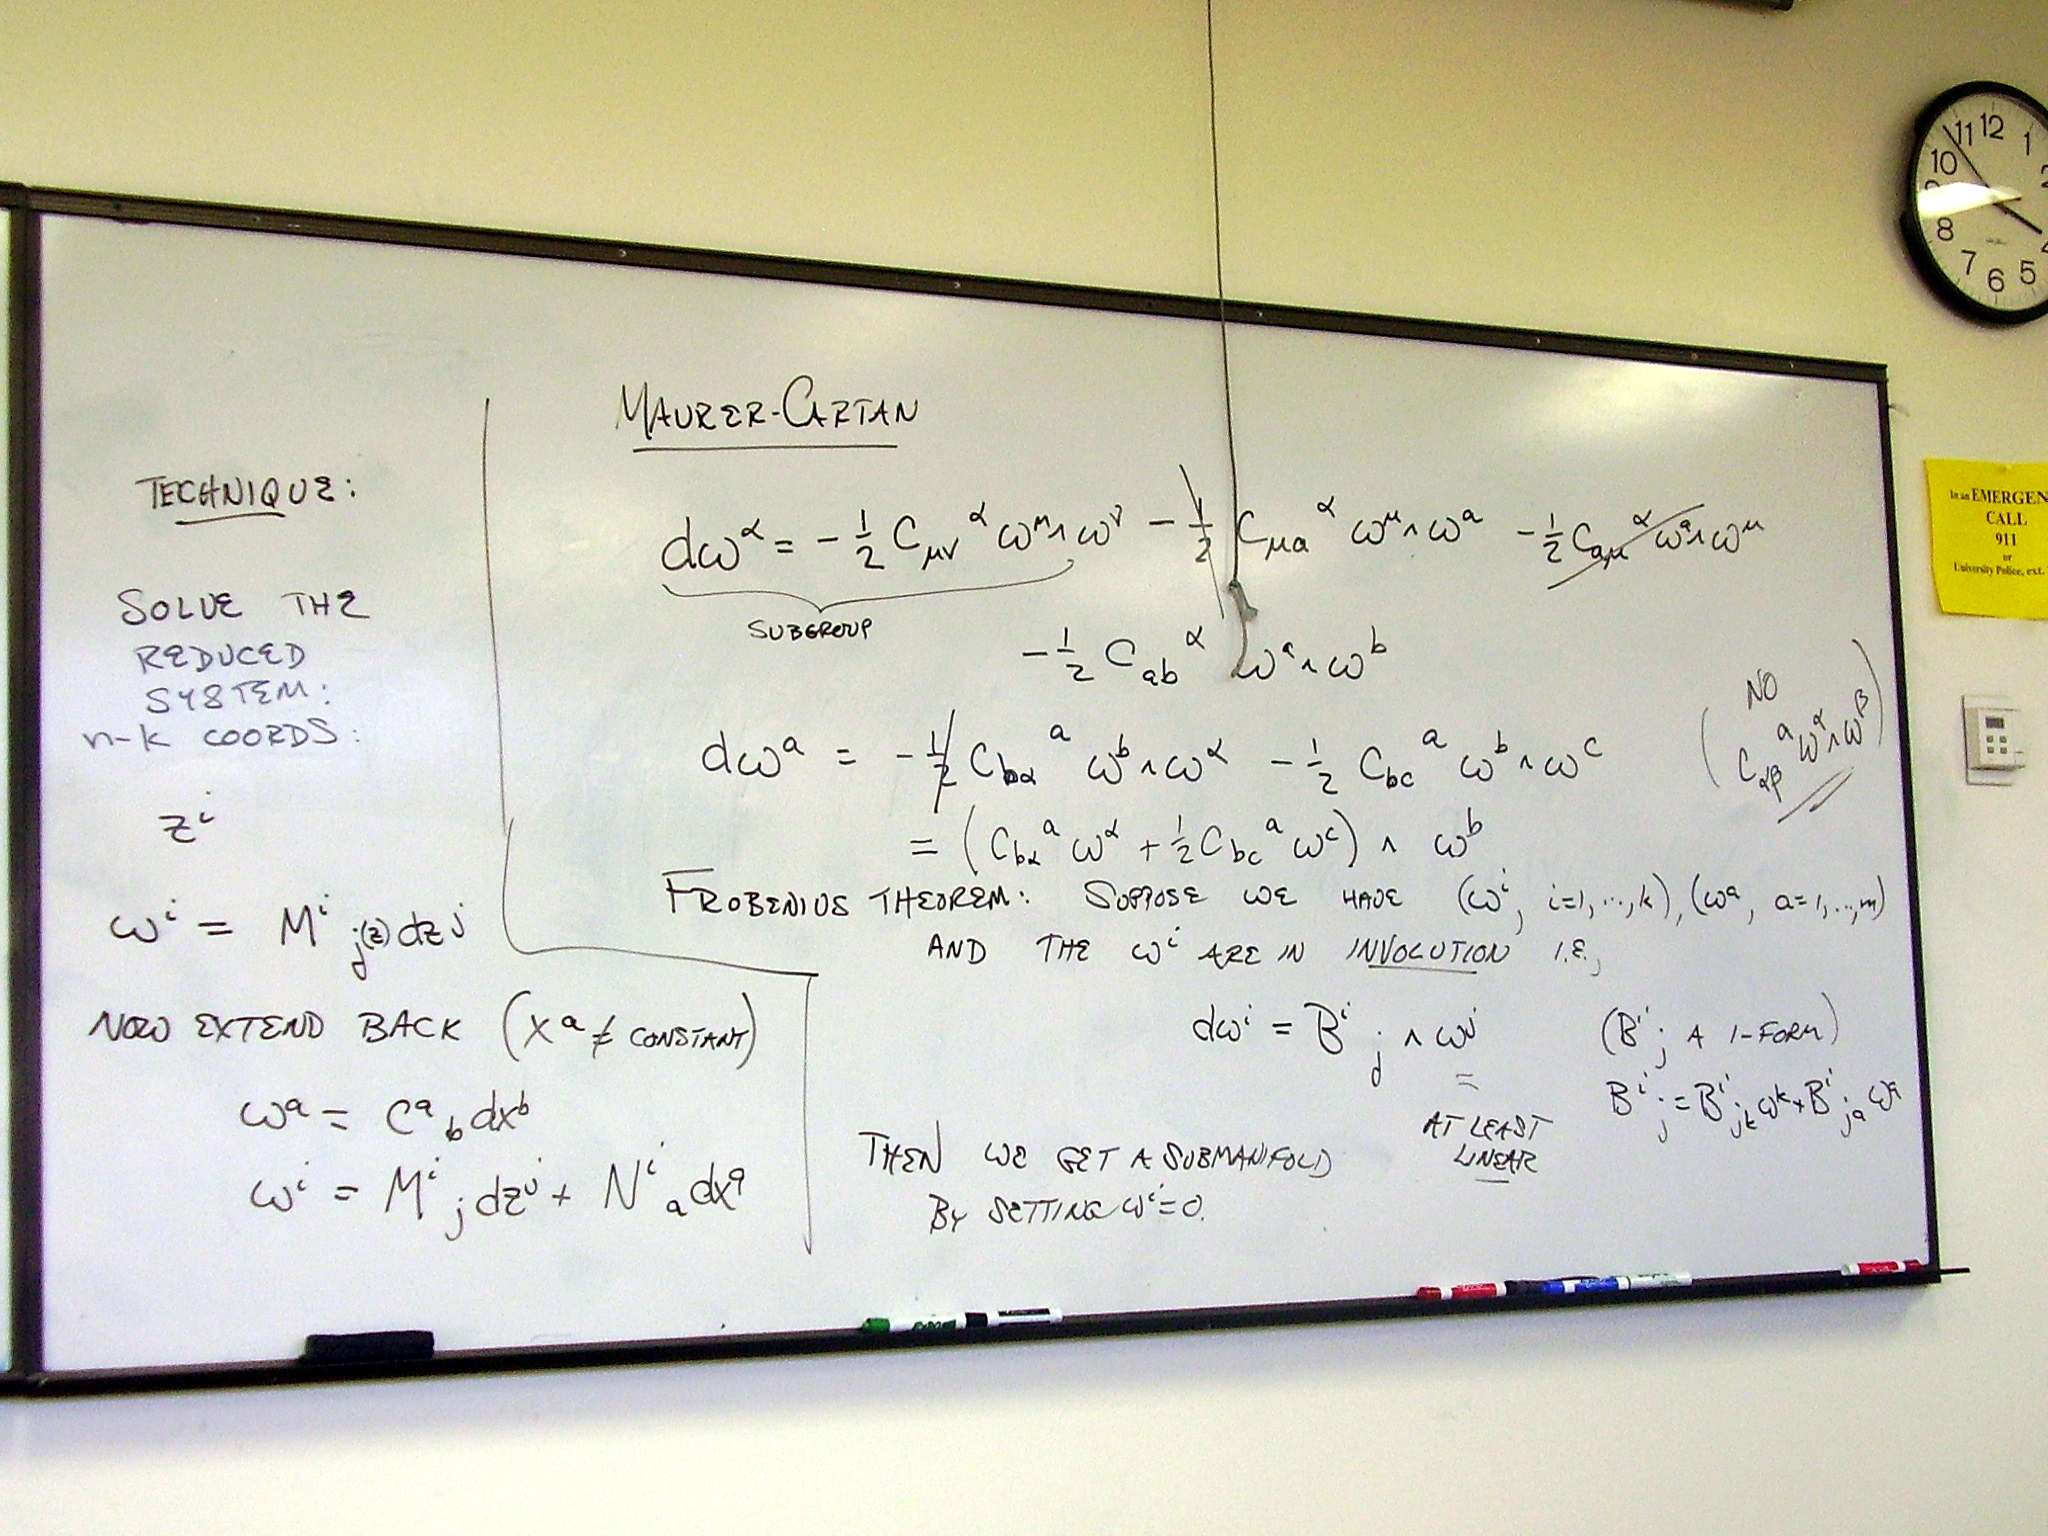 TECHNIQUE:
SOLVE THE
REDUCED
SYSTEM:
n-k COORDS:
zⁱ
ωⁱ = Mⁱ_j(z) dz^j
NOW EXTEND BACK (x^a ≠ CONSTANT)
ω^a = C^a_b dx^b
ωⁱ = Mⁱ_j dz^j + Nⁱ_a dx^a
MAURER-CARTAN
dω^α = -1/2 C_μν^α ω^μ∧ω^ν - 1/2 C_μa^α ω^μ∧ω^a - 1/2 C_aμ^α ω^a∧ω^μ
SUBGROUP
- 1/2 C_ab^α ω^a∧ω^b
dω^a = -1/2 C_bα^a ω^b∧ω^α - 1/2 C_bc^a ω^b∧ω^c
(NO
C_αβ^a ω^α∧ω^β)
= (C_bα^a ω^α + 1/2 C_bc^a ω^c) ∧ ω^b
FROBENIUS THEOREM: SUPPOSE WE HAVE (ωⁱ, i=1,...,k), (ω^a, a=1,...,m)
AND THE ωⁱ ARE IN INVOLUTION I.E.,
dωⁱ = Bⁱ_j ∧ ω^j (Bⁱ_j A 1-FORM)
Bⁱ_j = Bⁱ_jk ω^k + Bⁱ_ja ω^a
AT LEAST
LINEAR
THEN WE GET A SUBMANIFOLD
BY SETTING ωⁱ=0.
10 11 12 1
8 7 6 5
In an EMERGEN
CALL
911
or
University Police, ext.